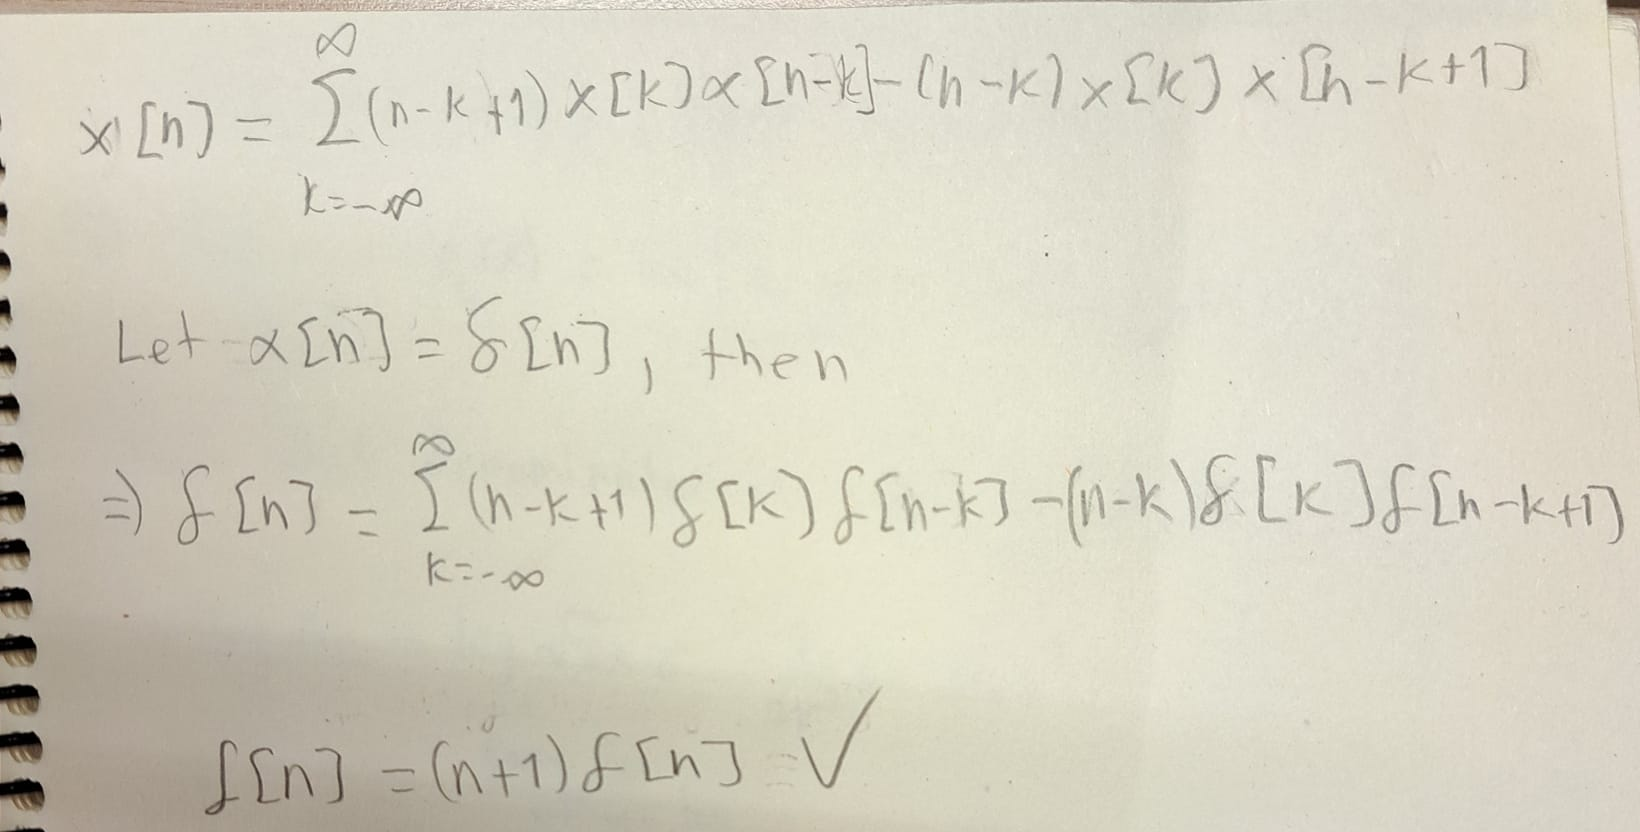 x[n] = ∞ Σ k=-∞ (n-k+1) x[k] x[n-k] - (n-k) x[k] x[n-k+1]
Let x[n] = δ[n], then
⇒ δ[n] = ∞ Σ k=-∞ (n-k+1) δ[k] δ[n-k] - (n-k) δ[k] δ[n-k+1]
δ[n] = (n+1) δ[n] ✓